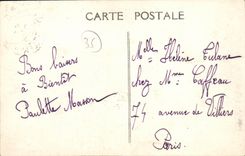 CARTE POSTALE
35
Bons baisers
à Bientôt
Paulette Maison
Melle Hélène
chez Mme Caffeau
74 avenue de Villiers
Paris.